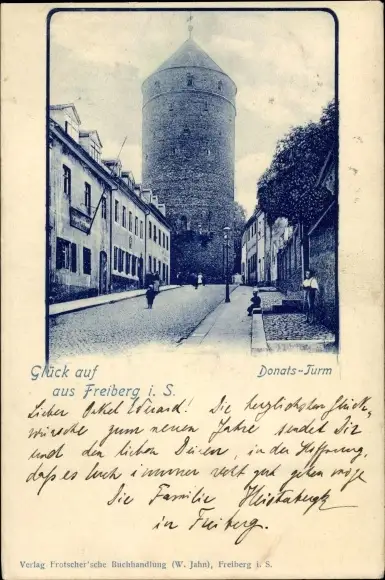 Glück auf
aus Freiberg i. S.
Donats-Turm
Lieber Onkel Eduard! Die herzlichsten Glück-
wünsche zum neuen Jahre sendet Dir
und den lieben Deinen, in der Hoffnung,
daß es Euch immer recht gut gehen möge
Die Familie
in Freiberg.
Verlag Frotscher'sche Buchhandlung (W. Jahn), Freiberg i. S.